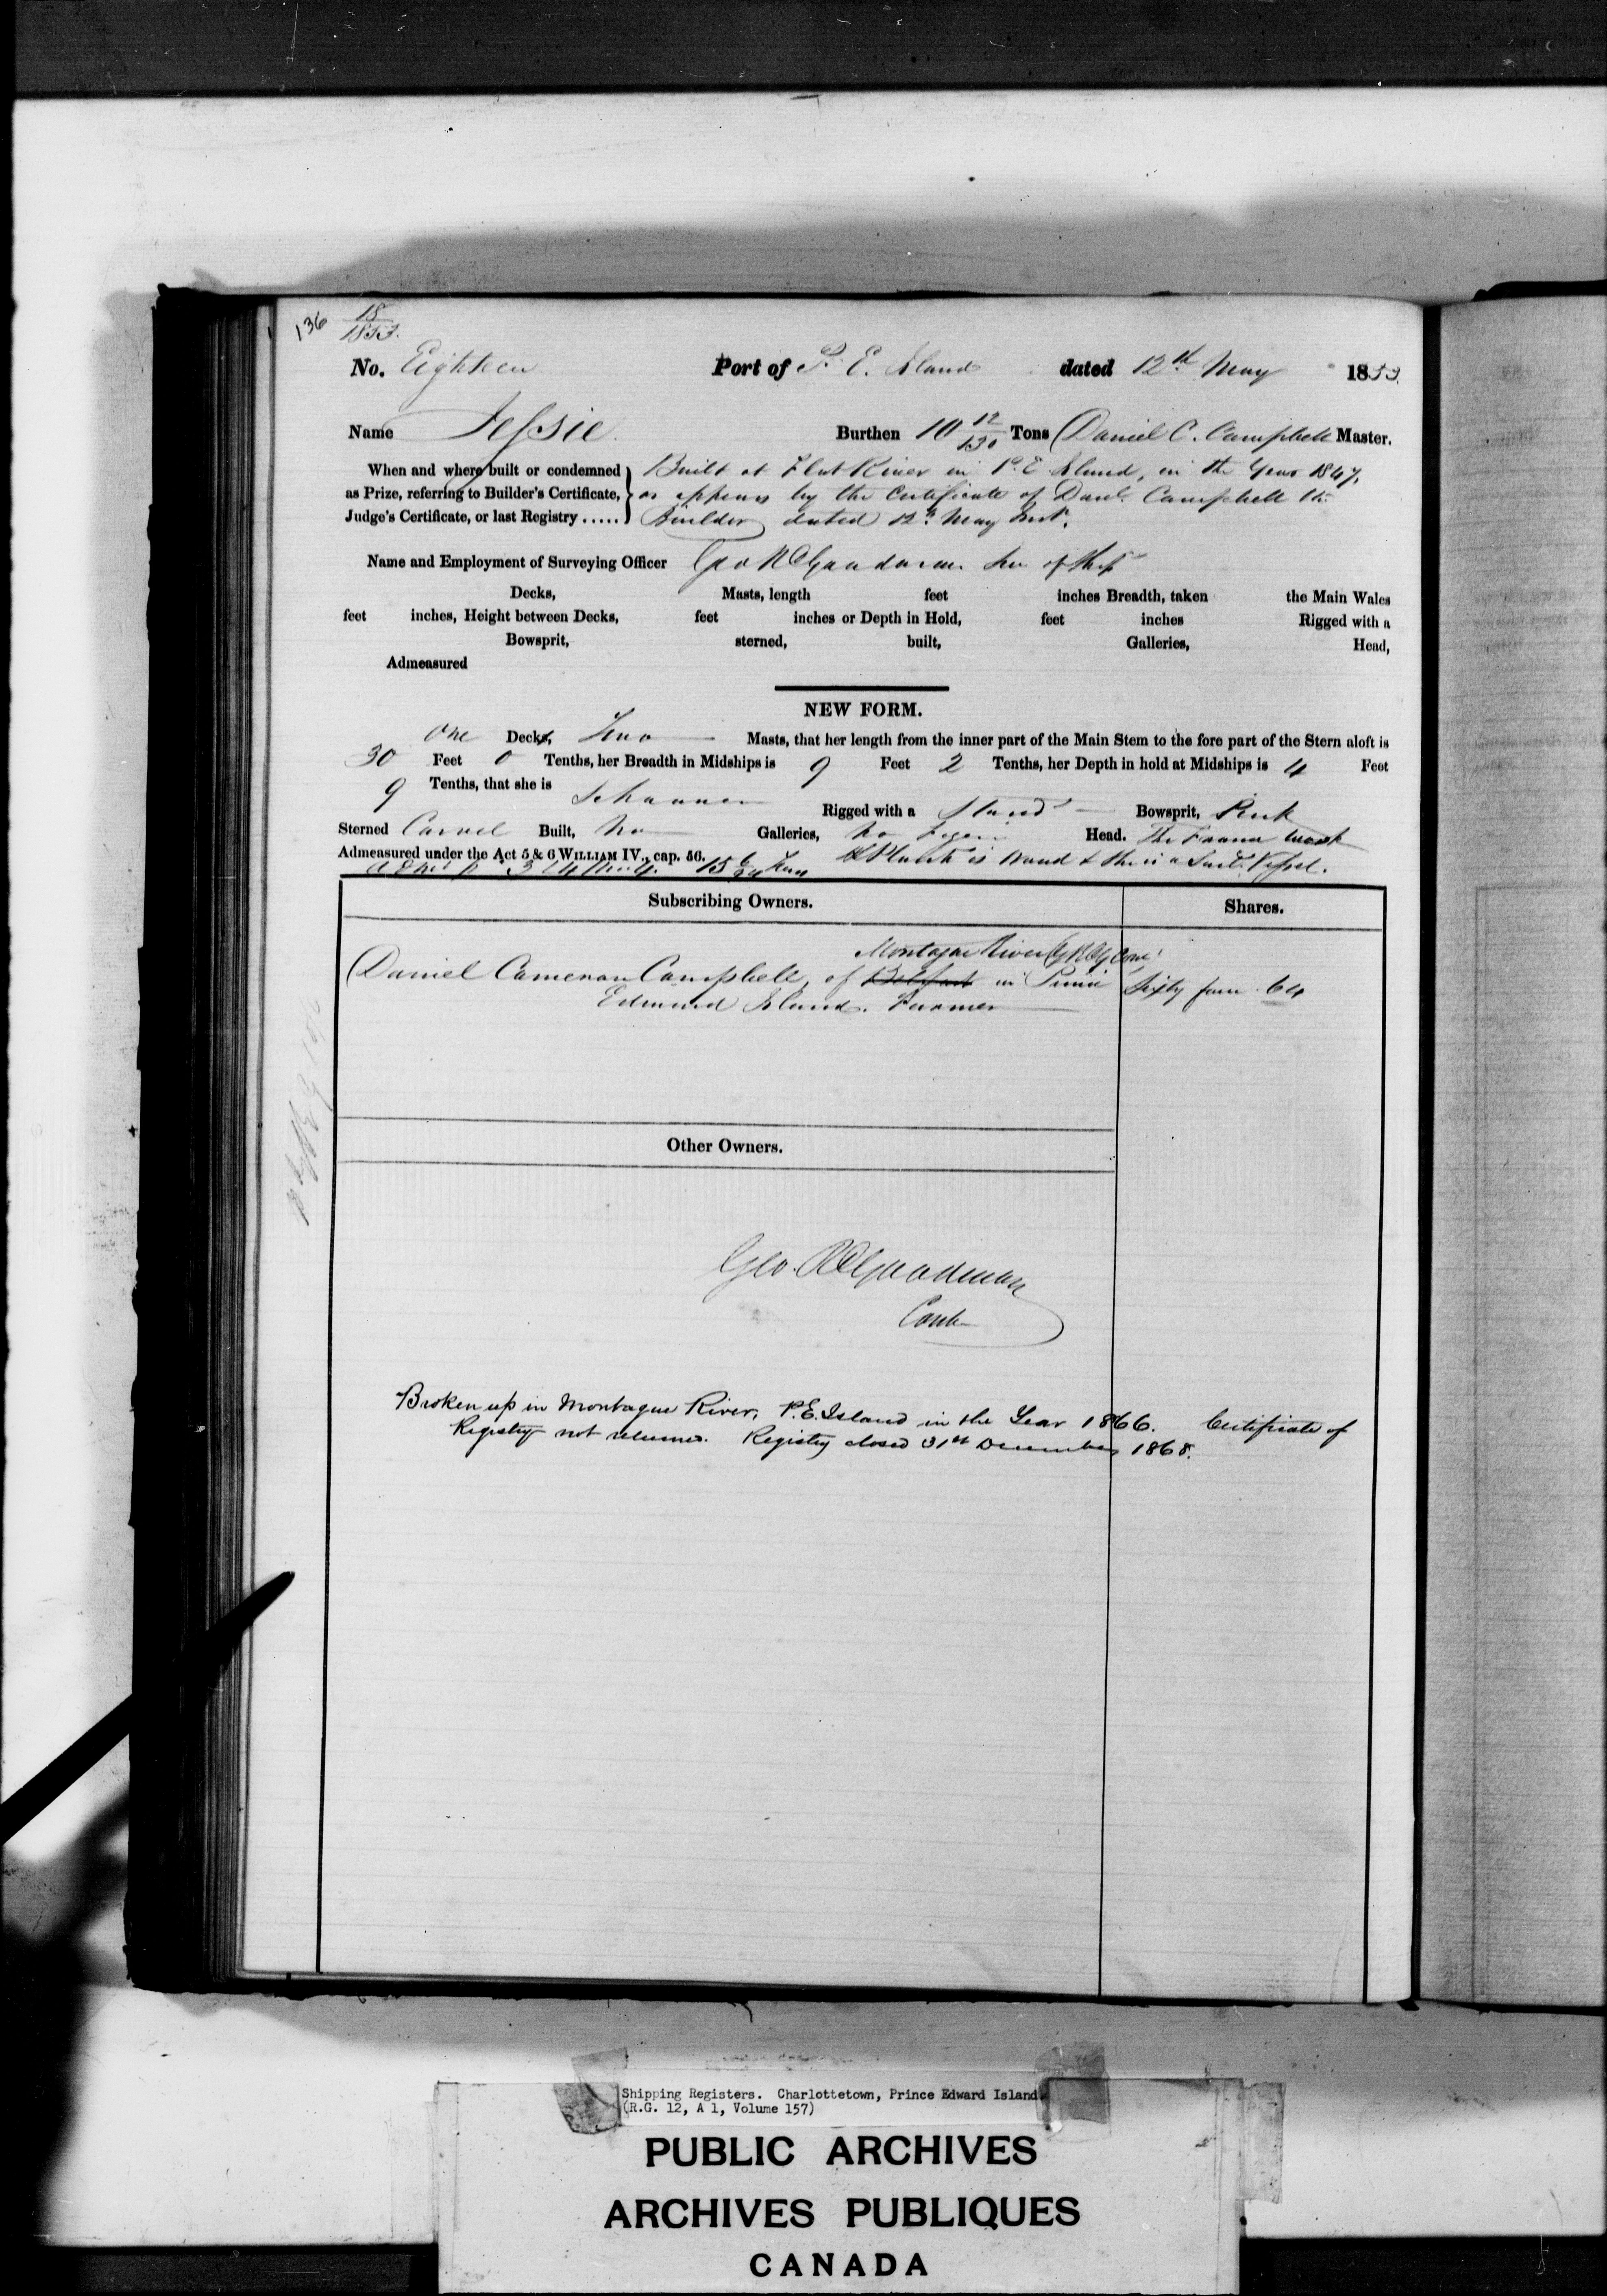 136 18/1853.
No. Eighteen Port of P. E. Island dated 12th May 1853.
Name Jessie Burthen 10 12/130 Tons Daniel C. Campbell Master.
When and where built or condemned Built at Flat River in P. E Island, in the Year 1847,
as Prize, referring to Builder's Certificate, as appears by the Certificate of Danl. Campbell the
Judge's Certificate, or last Registry ..... Builder dated 12th May Inst.
Name and Employment of Surveying Officer Geo R Goodman
Decks, Masts, length feet inches Breadth, taken the Main Wales
feet inches, Height between Decks, feet inches or Depth in Hold, feet inches Rigged with a
Bowsprit, sterned, built, Galleries, Head,
Admeasured
NEW FORM.
One Decks, Two Masts, that her length from the inner part of the Main Stem to the fore part of the Stern aloft is
30 Feet 0 Tenths, her Breadth in Midships is 9 Feet 2 Tenths, her Depth in hold at Midships is 4 Feet
9 Tenths, that she is Schooner Rigged with a Stand Bowsprit, Pink
Sterned Carvel Built, No Galleries, No Figure Head. The Frame work
Admeasured under the Act 5 & 6 WILLIAM IV., cap. 56. & Plank is Wood & she is a Sail. Vessel.
Subscribing Owners. Shares.
Montague River
Daniel Cameron Campbell, of Belfast in Prince Sixty four 64
Edward Island. Farmer
Other Owners.
Geo. R Goodman
Contr
Broken up in Montague River, P.E. Island in the Year 1866. Certificate of
Registry not returned. Registry closed 31st December 1868.
Shipping Registers. Charlottetown, Prince Edward Island
(R.G. 12, A 1, Volume 157)
PUBLIC ARCHIVES
ARCHIVES PUBLIQUES
CANADA